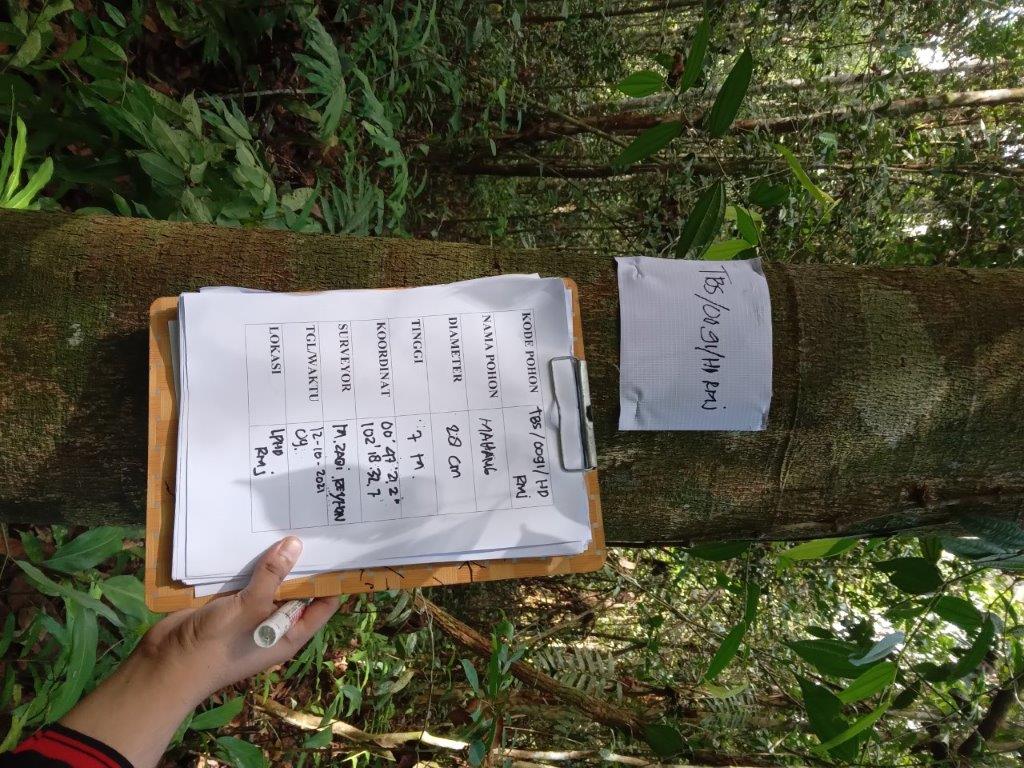 TBS/0091/HD RMJ
KODE POHON TBS/0091/HD
RMJ
NAMA POHON MAHANG
DIAMETER 28 cm
TINGGI 7 m
KOORDINAT 00°47'21,2"
102°18'32,7
SURVEYOR M. ZAQI
TGL/WAKTU 12-10-2021
09.
LOKASI LPHD
RMJ